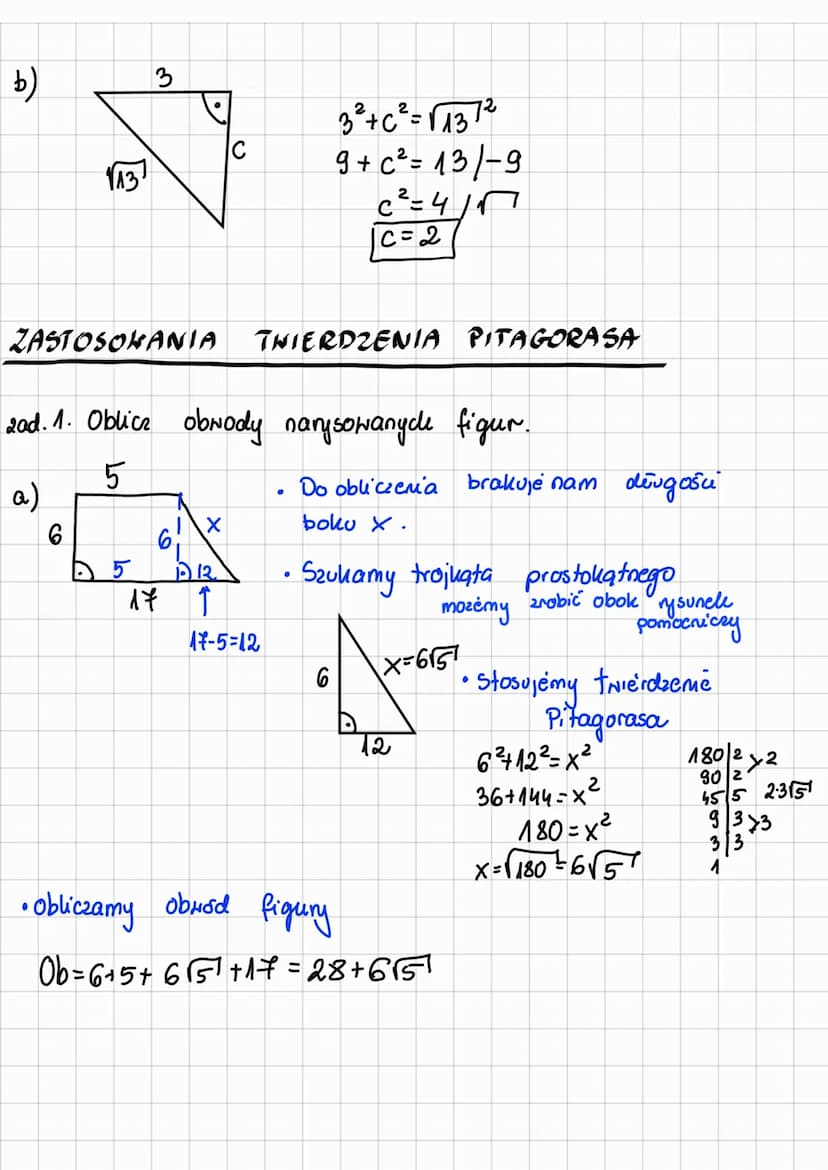 b)
3
√13
c
3²+c²=√13²
9+c²=13/-9
c²=4/√
c=2
ZASTOSOWANIA TWIERDZENIA PITAGORASA
zad.1. Oblicz obwody narysowanych figur.
a)
5
6
6
x
5
12
17
17-5=12
• Do obliczenia brakuje nam długości
boku x.
• Szukamy trójkąta prostokątnego
możemy zrobić obok rysunek
pomocniczy
6
x=6√5
12
• Stosujemy twierdzenie
Pitagorasa
6²+12²=x²
36+144=x²
180=x²
x=√180=6√5
180|2>2
90|2
45|5 2·3√5
9|3>3
3|3
1
• Obliczamy obwód figury
Ob=6+5+6√5+17=28+6√5